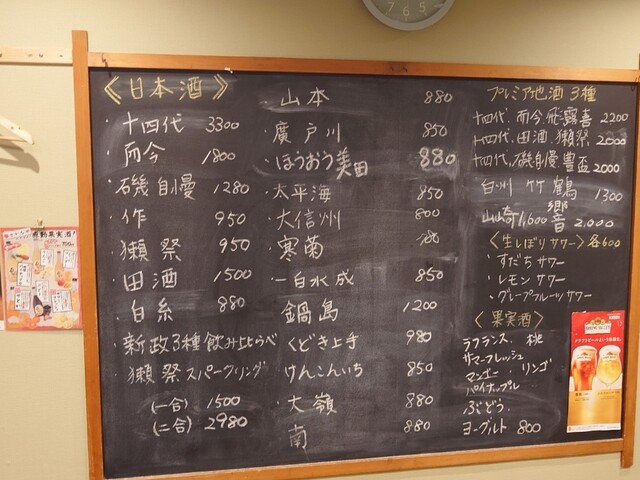 7 6 5
《日本酒》
・十四代 3300
・而今 1800
・磯自慢 1280
・作 950
・獺祭 950
・田酒 1500
・白糸 880
・新政3種飲み比べ
・獺祭スパークリング
(一合) 1500
(二合) 2980
山本 880
・廣戸川 850
・ほうおう美田 880
・太平海 850
・大信州 800
・寒菊
・一白水成 850
鍋島 1200
・くどき上手 980
・けんこんいち 850
・大嶺 880
南 880
プレミア地酒3種
十四代、而今、飛露喜 2200
十四代、田酒、獺祭 2000
十四代、磯自慢、豊盃 2000
白州 竹鶴 1300
山崎1,600 響 2.000
〈生しぼりサワー〉各600
・すだちサワー
・レモンサワー
・グレープフルーツサワー
〈果実酒〉
ラフランス、桃
サマーフレッシュ
マンゴー、リンゴ
パイナップル
ぶどう、
ヨーグルト 800